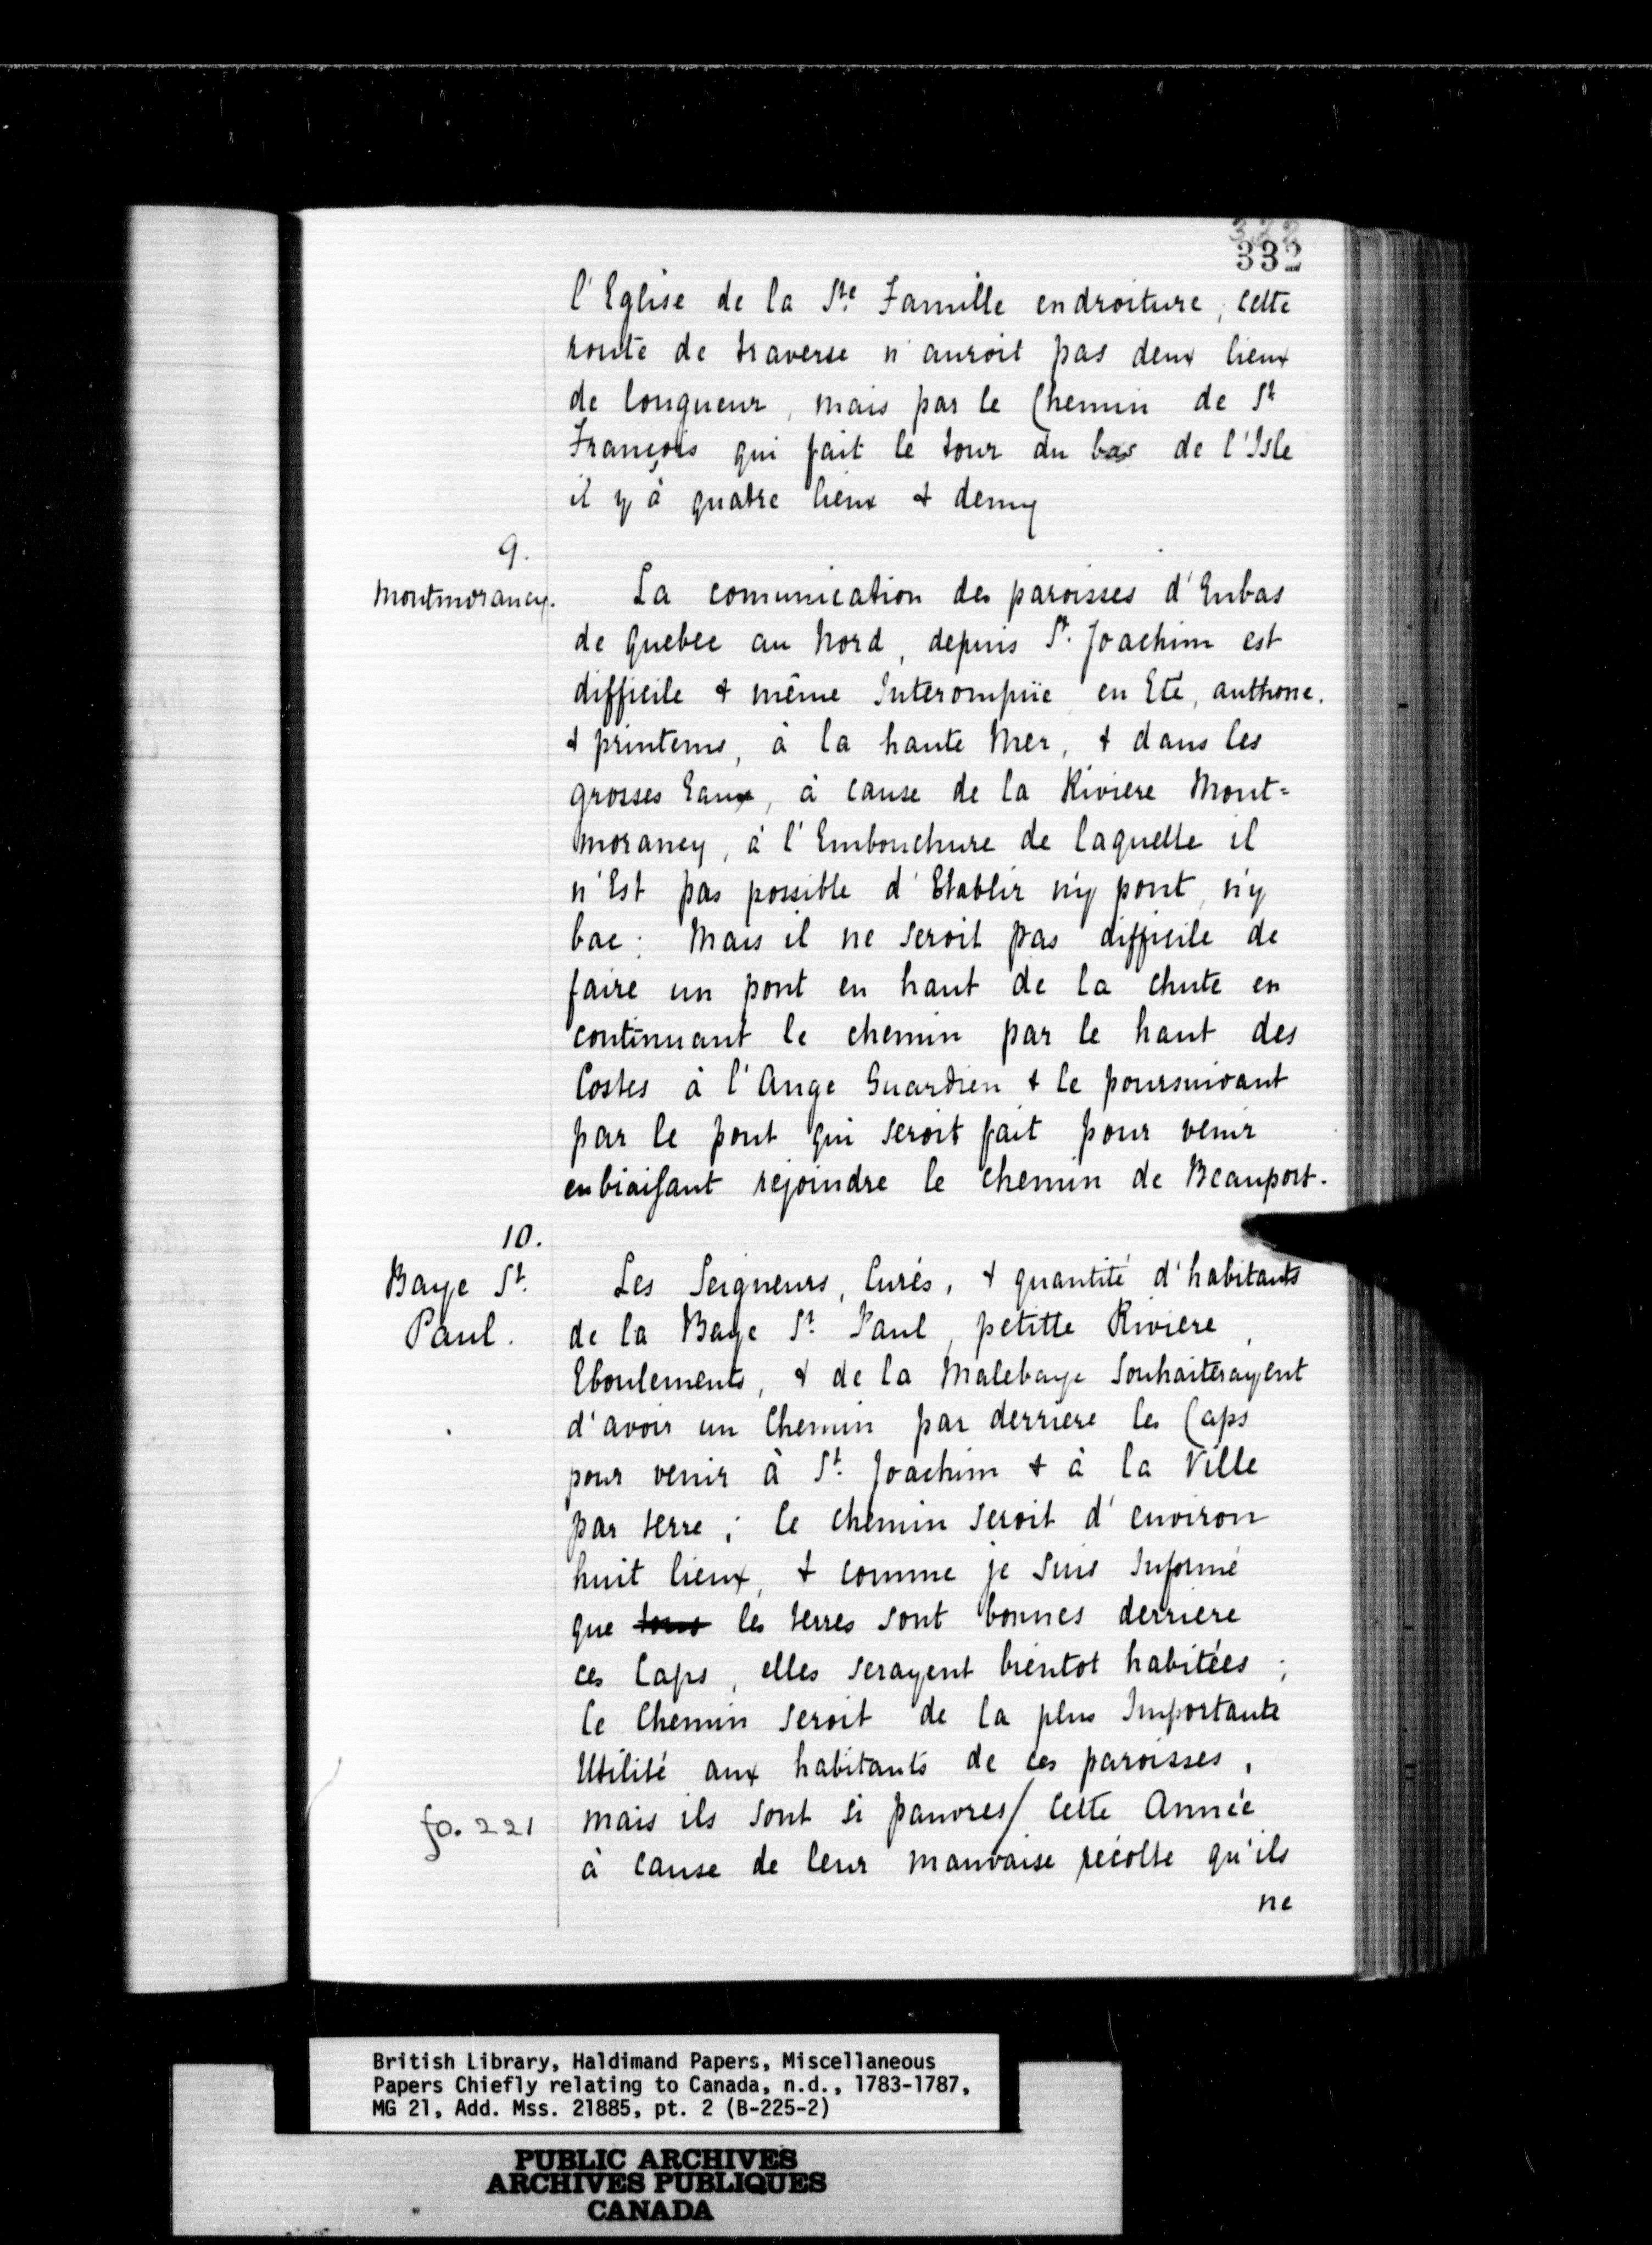 322
332
l'Eglise de la Ste Famille endroiture ; cette
route de traverse n'auroit pas deux lieux
de longueur, mais par le Chemin de St
François qui fait le tour du bas de l'Isle
il y à quatre lieux & demy
9.
Montmorancy.
La comunication des paroisses d'Enbas
de Quebec au Nord, depuis St. Joachim est
difficile & même Interompüe en Eté, authone,
& printems, à la haute Mer, & dans les
grosses Eaux, à cause de la Riviere Mont=
morancy, à l'Embouchure de laquelle il
n'Est pas possible d'Etablir n'y pont, n'y
bac : Mais il ne seroit pas difficile de
faire un pont en haut de la chute en
continuant le chemin par le haut des
Costes à l'Ange Guardien & le poursuivant
par le pont qui seroit fait pour venir
enbiaisant rejoindre le chemin de Beauport.
10.
Baye St.
Paul.
Les Seigneurs, Curés, & quantité d'habitants
de la Baye St. Paul, petitte Riviere,
Eboulements, & de la Malebaye Souhaiterayent
d'avoir un Chemin par derriere les Caps
pour venir à St. Joachim & à la Ville
par terre ; Ce chemin seroit d'environ
huit lieux, & comme je suis Informé
que tous les terres sont bonnes derriere
ces Caps, elles serayent bientot habitées ;
Ce Chemin seroit de la plus Importante
Utilité aux habitants de ces paroisses,
mais ils sont si pauvres / Cette Année
fo. 221
à cause de leur mauvaise récolte qu'ils
ne
British Library, Haldimand Papers, Miscellaneous
Papers Chiefly relating to Canada, n.d., 1783-1787,
MG 21, Add. Mss. 21885, pt. 2 (B-225-2)
PUBLIC ARCHIVES
ARCHIVES PUBLIQUES
CANADA